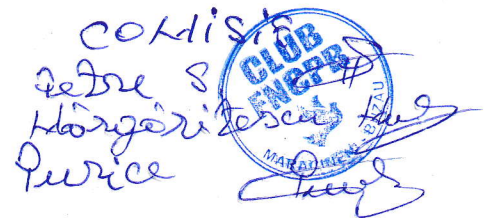 COMISIA
Petre S
Mărgăritescu
Purice
CLUB
FNCPR
MARACINENI - BUZAU